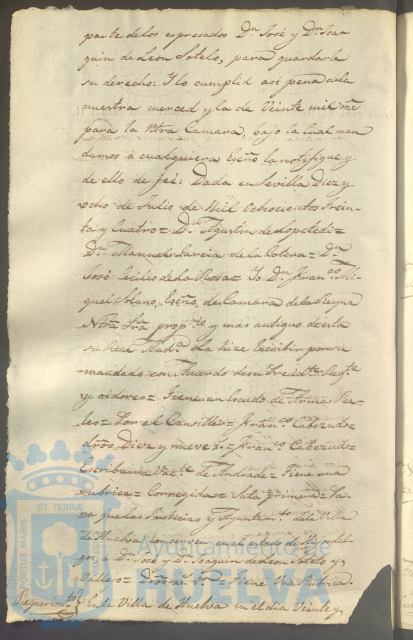 parte delos expresados Dn. José y Dn. Joaq
quin de Leon Sotelo, para guardarle
su derecho: Y lo cumplid asi pena dela
nuestra merced y la de Veinte mil ms.
para la Ntra Camara, bajo la cual man
damos á cualquiera Esño. la notifique y
de ello de feé: Dada en Sevilla Diez y
ocho de Julio de Mil Ochocientos Trein
ta y Cuatro = Dn. Agustin de Lopetedi =
Dn. Manuel Garcia de la Cotera = Dn.
José Cecilio de la Rosa = Yo Dn. Franco. Mi
guel Solano, Esño. de Camara de la Reyna
Ntra. Sra. propto. y mas antiguo de esta
su Real Audª. la hize Escribir por su
mandado con Acuerdo de su Presidte. Regte.
y oidores = Tiene un Escudo de Armas Rea
les = Por el Canciller = Franco. Cabezudo =
dros. Diez y nueve rs. = Franco. Cabezudo =
Escribania Vacte. de Andrade = Tiene una
rubrica = Corregida = Sota primera = Pa
ra que las Justicias y Ayuntamto. dela Villa
de Huelva, conserven en el estado de Hijosdal
go, á Dn. José y Dn. Joaquin de Leon Sotelo y
Villers = Tiene Una Rubrica.
Requerimto. En la Villa de Huelva en el dia Veinte y
PORTUS MARIS ET TERRAE
Ayuntamiento de
HUELVA